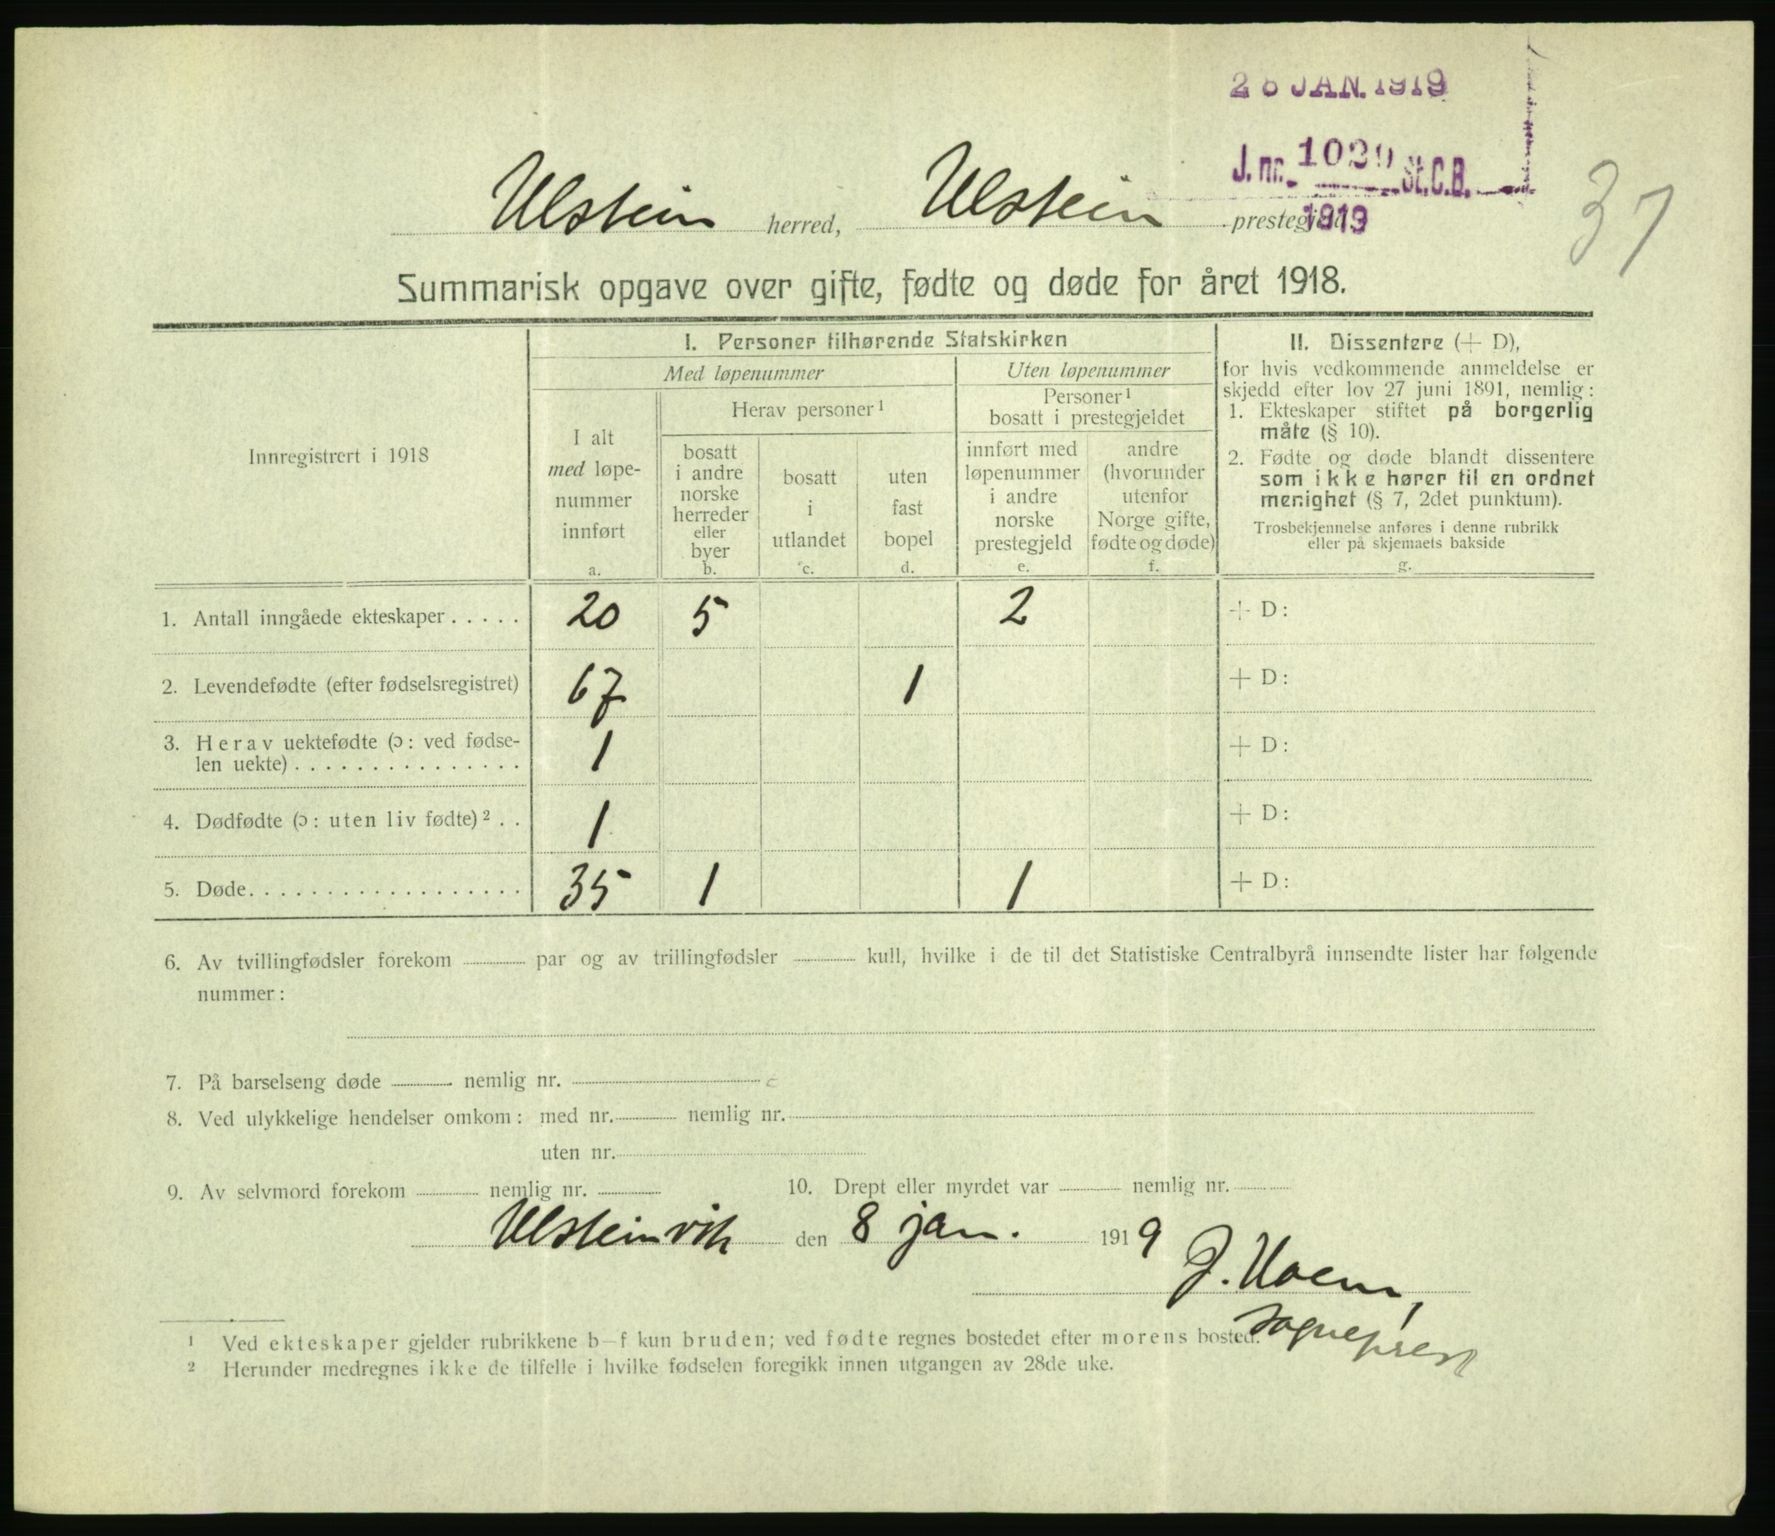 28 JAN. 1919
J. nr. 1029 St.C.B.
1919
37
Ulstein herred, Ulstein prestegjeld
Summarisk opgave over gifte, fødte og døde for året 1918.
Innregistrert i 1918
I. Personer tilhørende Statskirken
Med løpenummer
Uten løpenummer
I alt
med løpe-
nummer
innført
a.
Herav personer ¹
bosatt
i andre
norske
herreder
eller
byer
b.
bosatt
i
utlandet
c.
uten
fast
bopel
d.
Personer ¹
bosatt i prestegjeldet
innført med
løpenummer
i andre
norske
prestegjeld
e.
andre
(hvorunder
utenfor
Norge gifte,
fødte og døde)
f.
II. Dissentere (+ D),
for hvis vedkommende anmeldelse er
skjedd efter lov 27 juni 1891, nemlig:
1. Ekteskaper stiftet på borgerlig
måte (§ 10).
2. Fødte og døde blandt dissentere
som ikke hører til en ordnet
menighet (§ 7, 2det punktum).
Trosbekjennelse anføres i denne rubrikk
eller på skjemaets bakside
g.
1. Antall inngåede ekteskaper . . . . . 20 5 2 + D:
2. Levendefødte (efter fødselsregistret) 67 1 + D:
3. Herav uektefødte (ɔ: ved fødse-
len uekte) . . . . . . . . . . . . . . . 1 + D:
4. Dødfødte (ɔ: uten liv fødte) ² . . 1 + D:
5. Døde. . . . . . . . . . . . . . . . . . 35 1 1 + D:
6. Av tvillingfødsler forekom par og av trillingfødsler kull, hvilke i de til det Statistiske Centralbyrå innsendte lister har følgende
nummer:
7. På barselseng døde nemlig nr.
8. Ved ulykkelige hendelser omkom: med nr. nemlig nr.
uten nr.
9. Av selvmord forekom nemlig nr. 10. Drept eller myrdet var nemlig nr.
Ulsteinvik den 8 jan. 1919
sogneprest
¹ Ved ekteskaper gjelder rubrikkene b—f kun bruden; ved fødte regnes bostedet efter morens bosted.
² Herunder medregnes ikke de tilfelle i hvilke fødselen foregikk innen utgangen av 28de uke.